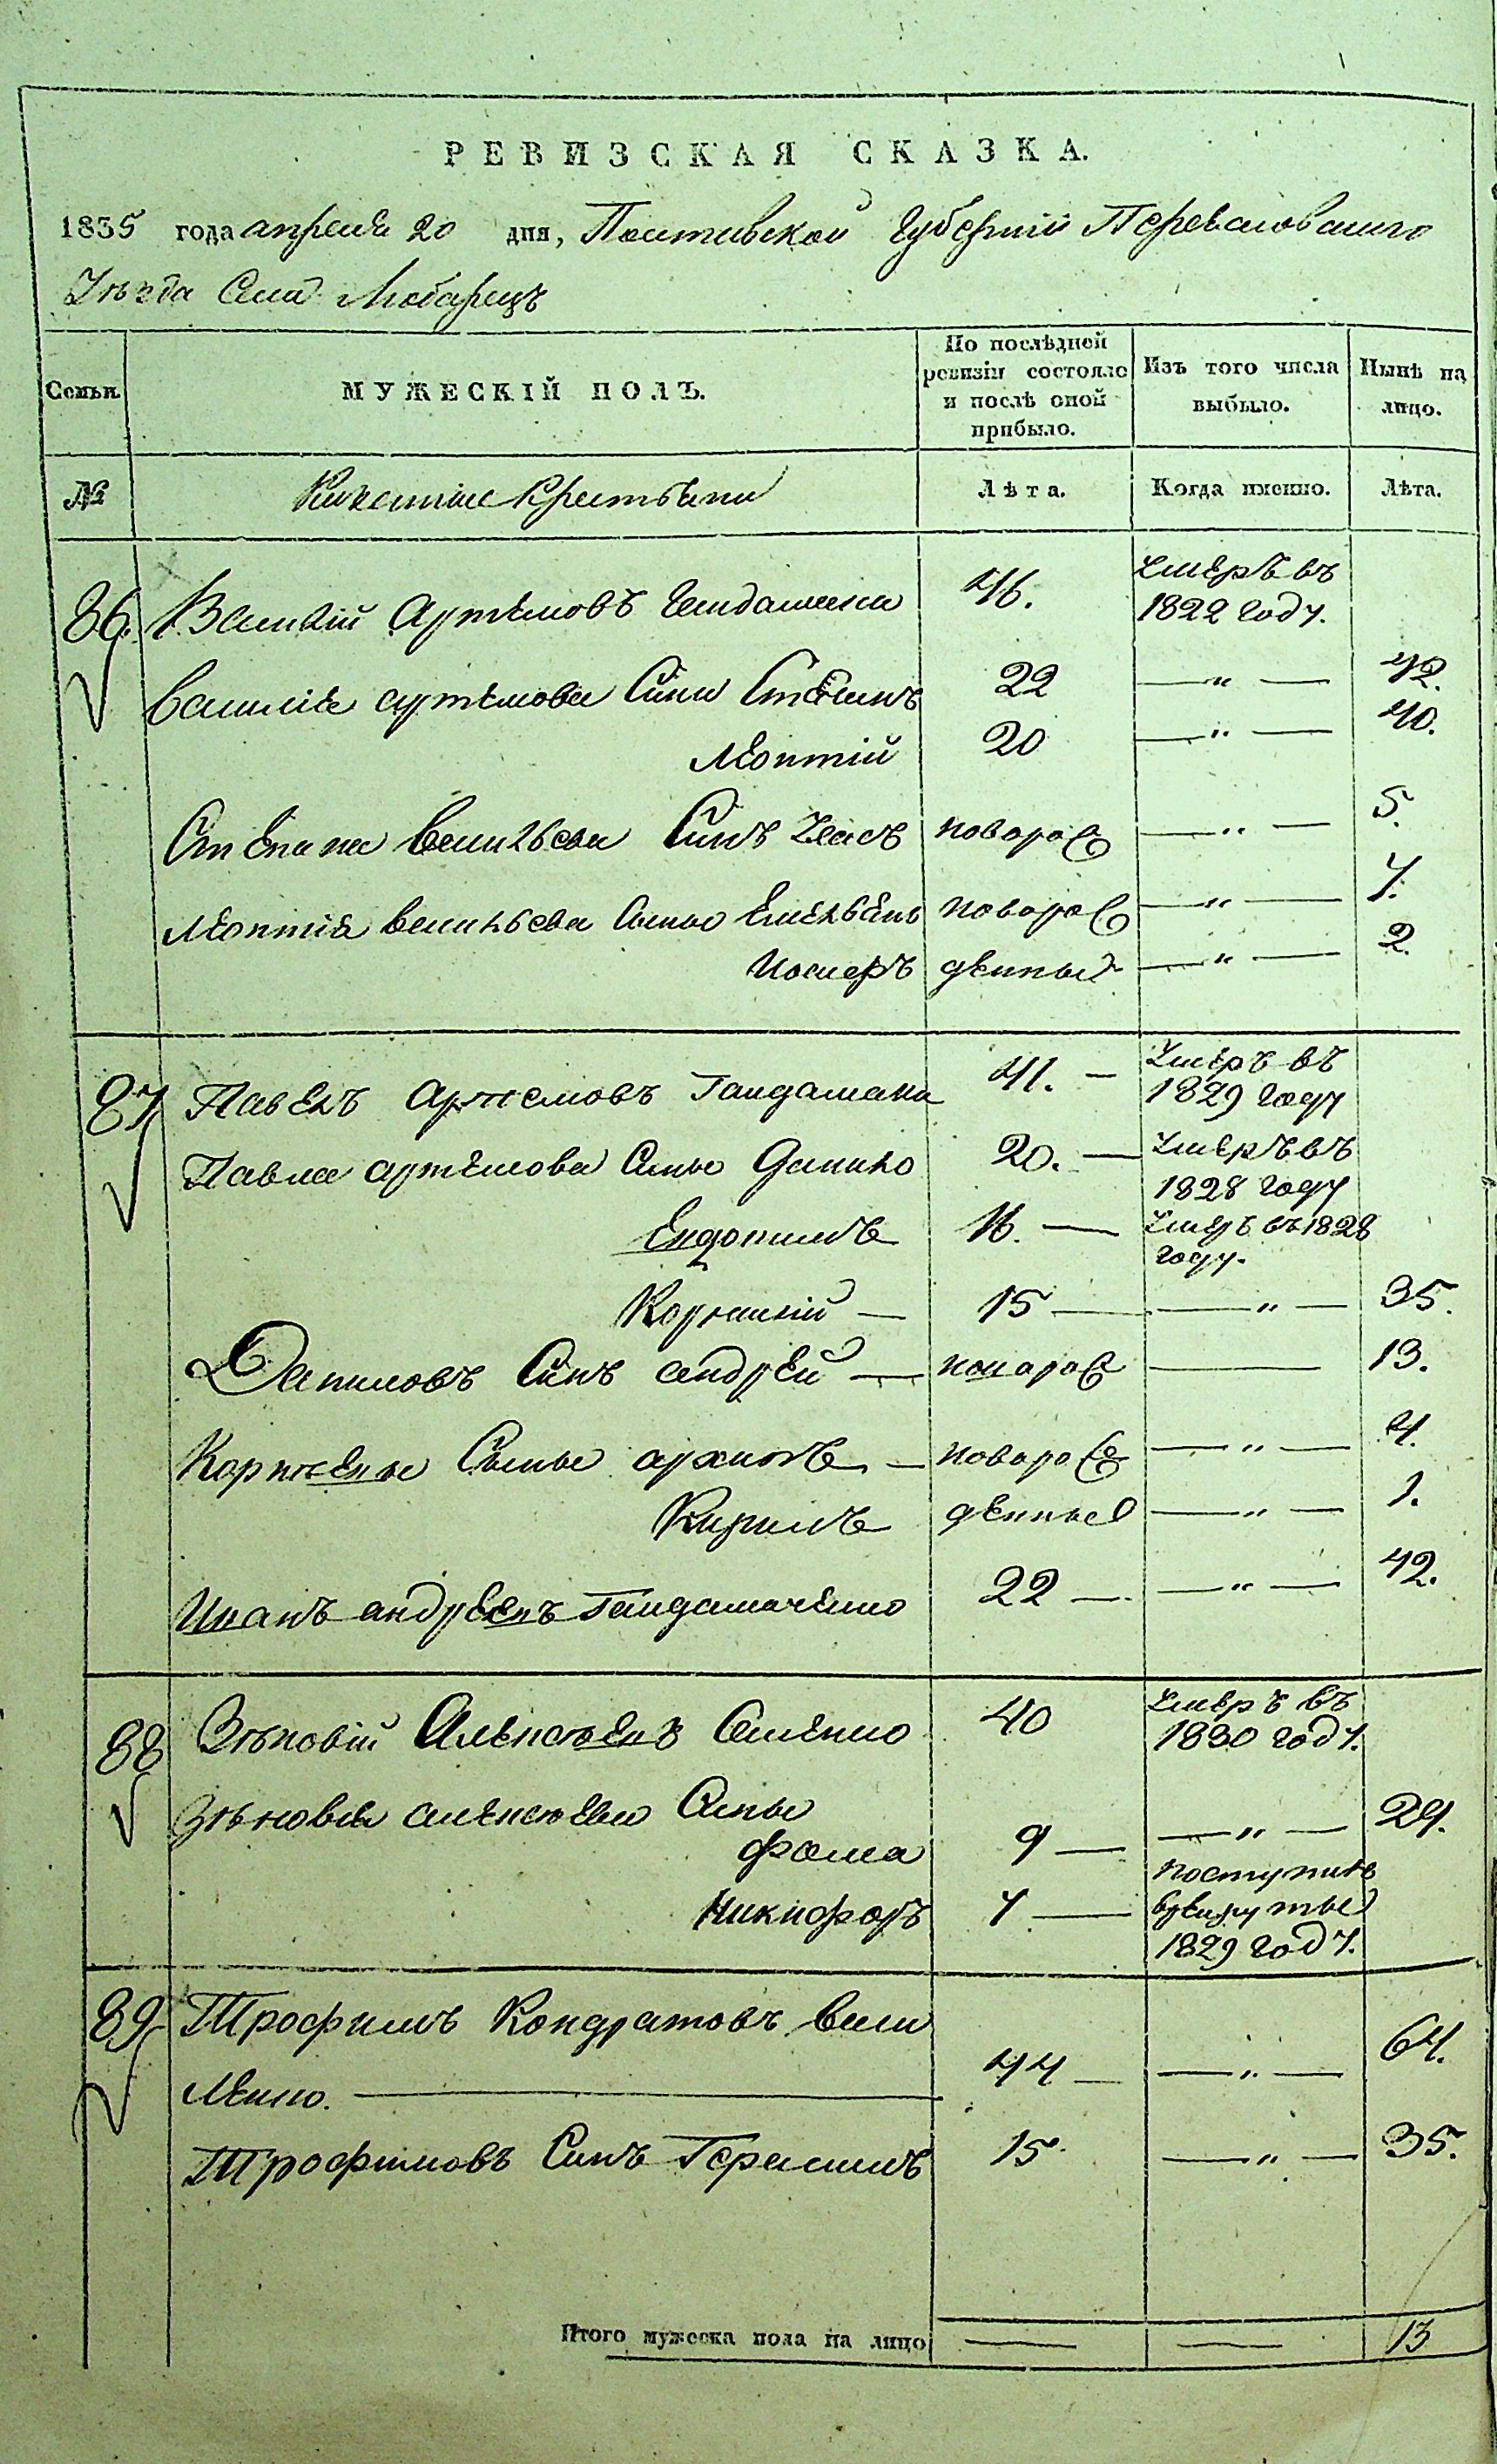 РЕВИЗСКАЯ СКАЗКА.
1835 года апреля 20 дня, Полтавской Губерніи Переясловского
Уѣзда Села Любарецъ
Семьи. МУЖЕСКІЙ ПОЛЪ. По послѣдней ревизіи состояло и послѣ оной прибыло. Изъ того числа выбыло. Нынѣ на лицо.
№ крестьяни Лѣта. Когда именно. Лѣта.
86. Василій Артемовъ Гайдамака 46. Умеръ въ 1822 году.
Василія артемова Сини Степанъ 22 — " — 42.
Леонтій 20 — " — 40.
Степана Васильева Синъ Власъ новорож — " — 5.
Леонтія васильева Сыны Емельянъ новорож — " — 7.
Иосифъ денные — " — 2.
87 Павелъ Артемовъ Гайдамака 41. — Умеръ въ 1829 году
Павла артемова Сыны Данило 20. — Умеръ въ 1828 году
Евдокимъ 16. — Умеръ въ 1828 году.
Корнилій — 15 — " — 35.
Даниловъ Синъ андрей — новорож — 13.
Сыны архипъ — новорож — " — 4.
Кирилъ денные — " — 1.
Иванъ андреевъ Гайдамаченко 22 — — " — 42.
88 Зѣновій Алексѣевъ Семенко 40 Умеръ въ 1830 году.
Зѣновія алексѣева Сыны
Фома 9 — — " — 29.
Никифоръ 7 — поступилъ в рекруты 1829 году.
89. Трофимъ Кондратовъ Васи
ленко. — 44 — — " — 64.
Трофимовъ Синъ Герасимъ 15 — " — 35.
Итого мужеска пола на лицо — — 13